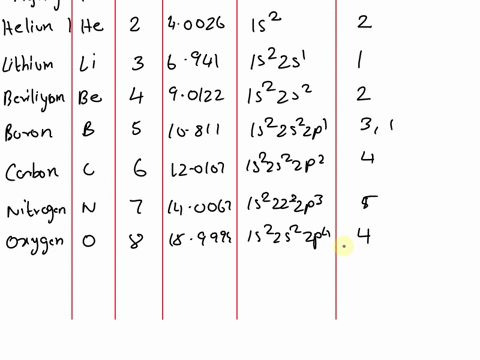 Helium He 2 4.0026 1s² 2
Lithium Li 3 6.941 1s²2s¹ 1
Beriliyon Be 4 9.0122 1s²2s² 2
Boron B 5 10.811 1s²2s²2p¹ 3, 1
Carbon C 6 12.0107 1s²2s²2p² 4
Nitrogen N 7 14.0067 1s²22²2p³ 5
Oxygen O 8 18.9994 1s²2s²2p⁴ 4